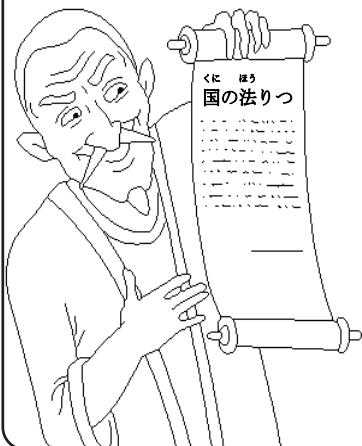 くに ほう
国の法りつ